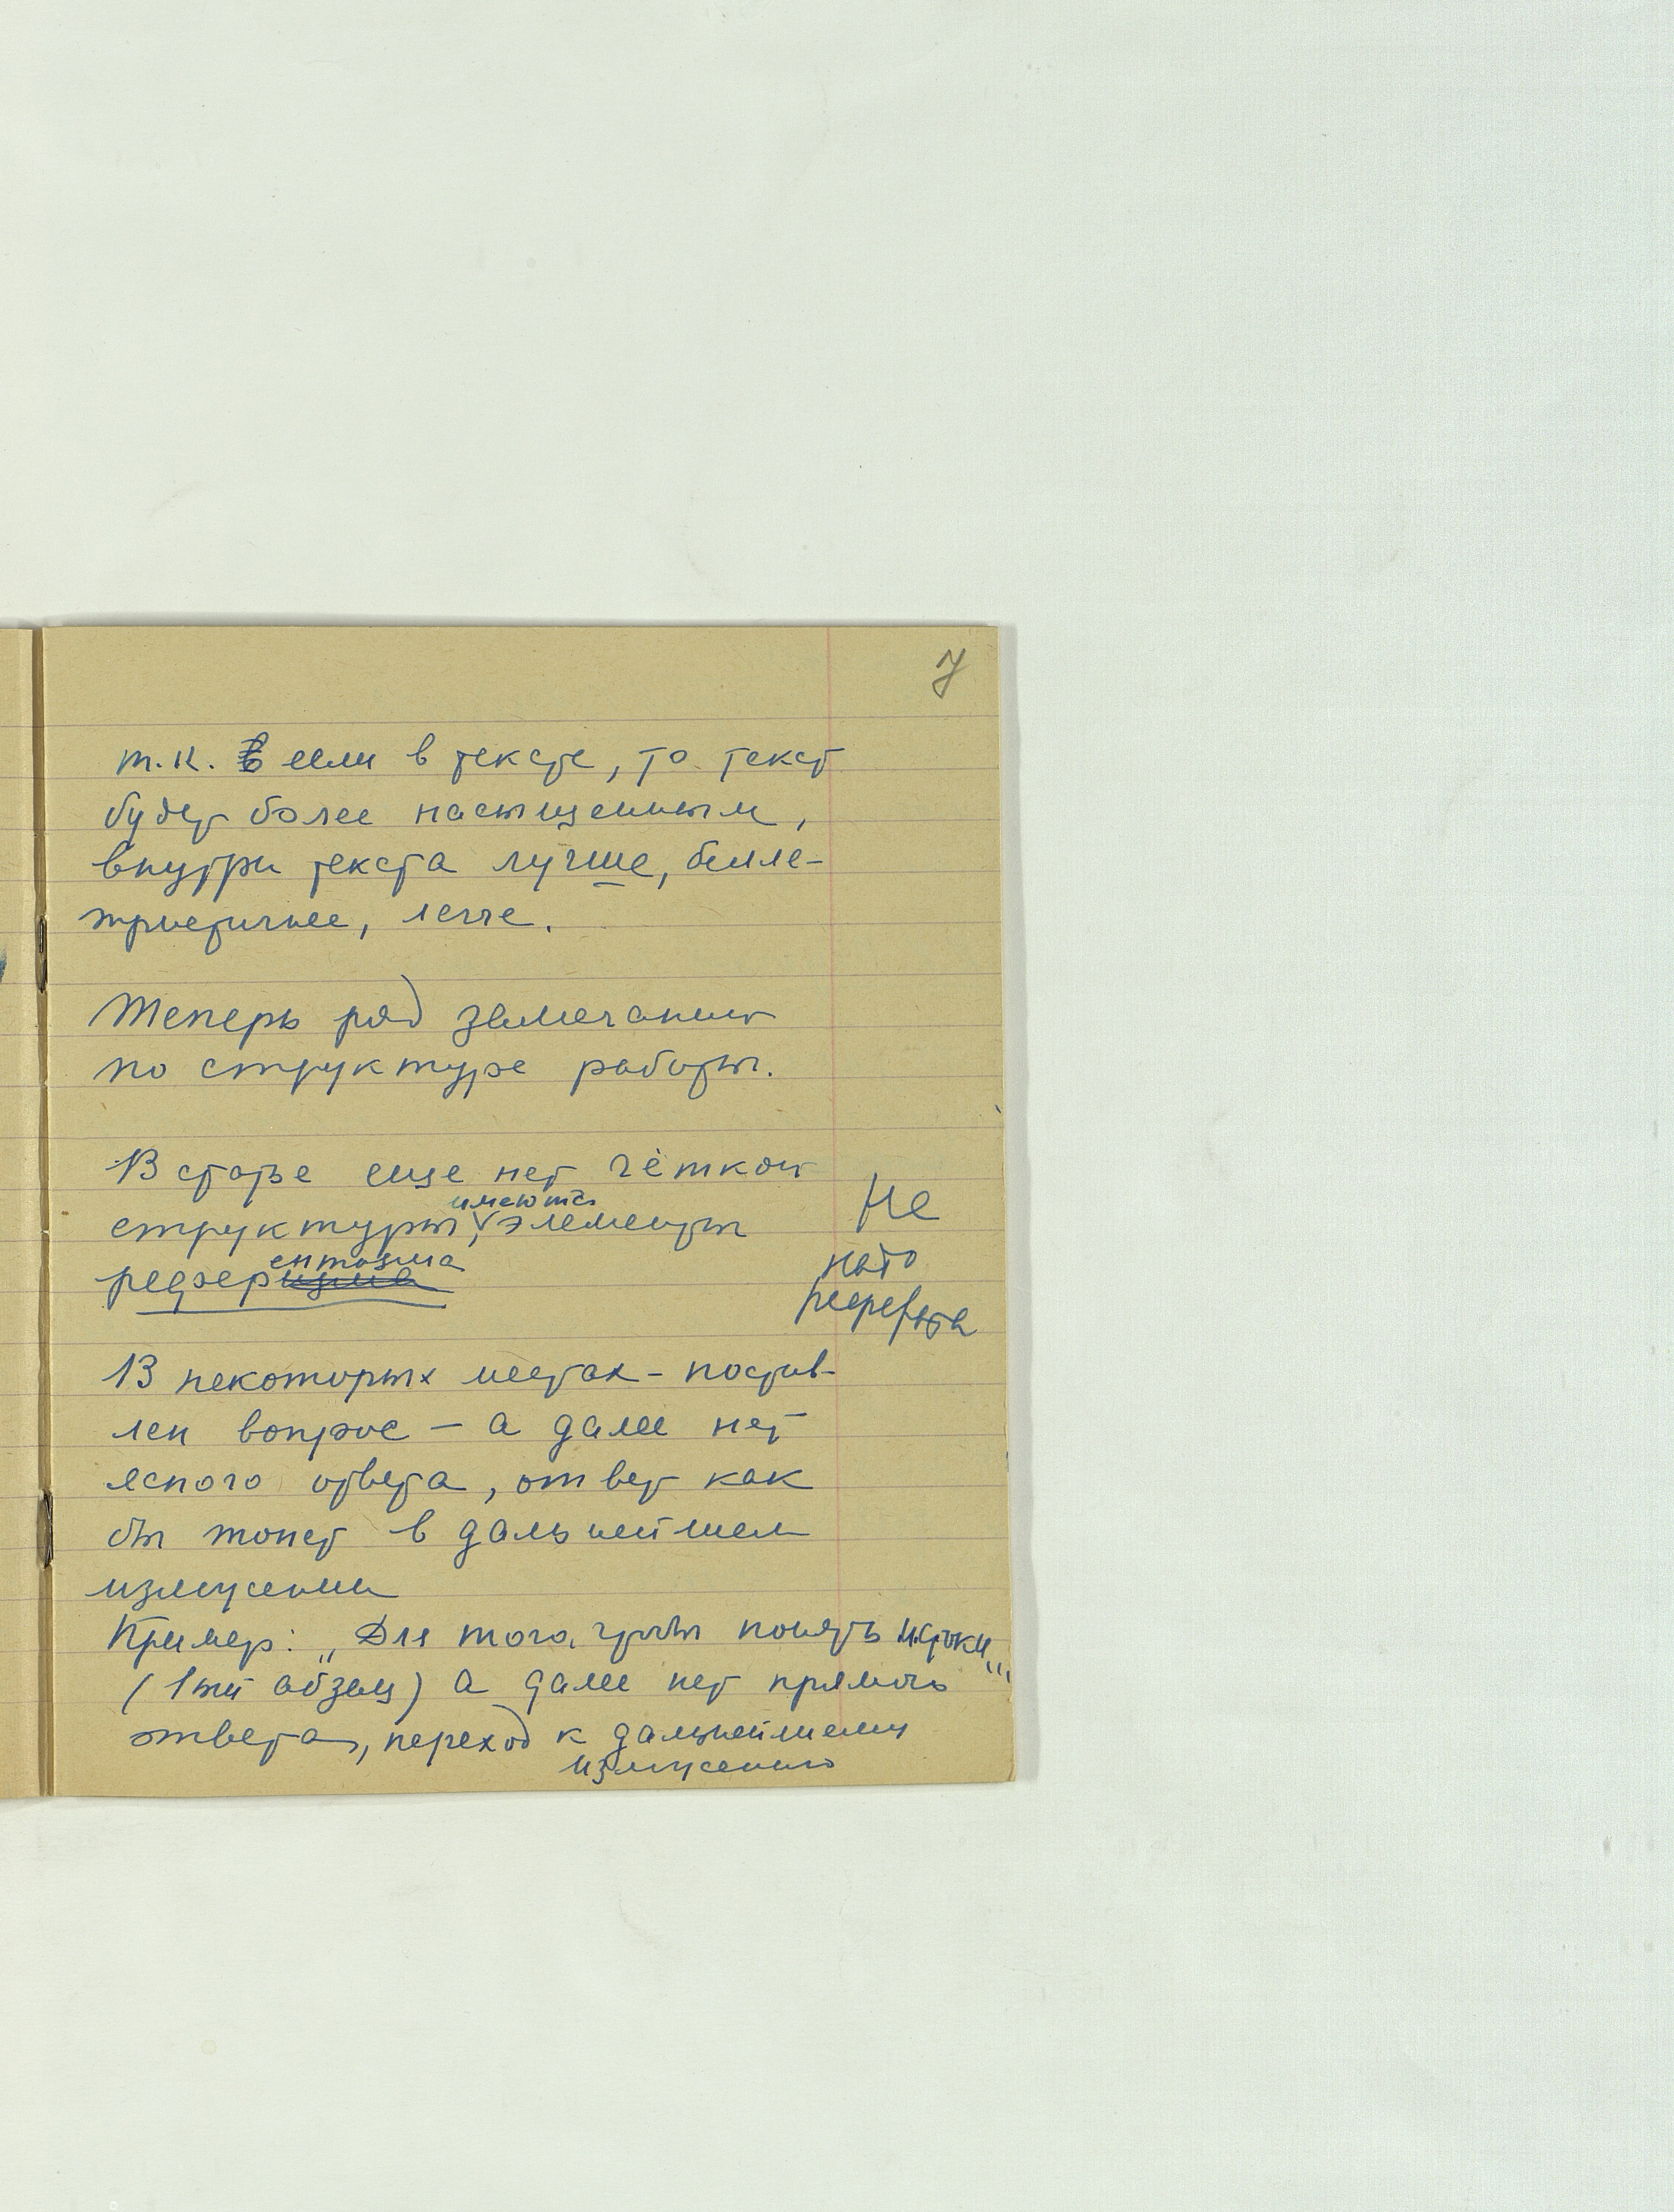 7
т.к. если в тексте, то текст
будет более насыщенным,
внутри текста лучше, белле-
тристичнее, легче.
Теперь ряд замечаний
по структуре работы.
В статье еще нет чёткой
структуры, имеются элементы
референтизма
Не
надо
В некоторых местах - постав-
лен вопрос — а далее нет
ясного ответа, ответ как
бы тонет в дальнейшем
изложении
Пример: „Для того, чтобы понять
(1ый абзац) а далее нет прямого
ответа, переход к дальнейшему
изложению